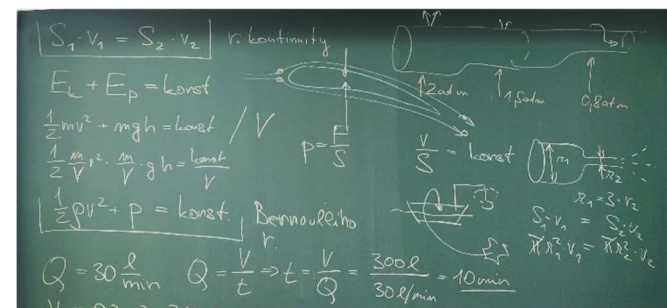 S₁·v₁ = S₂·v₂ r. kontinuity
Eₖ + Eₚ = konst
½mv² + mgh = konst / V
½ m/V v² · m/V · gh = konst/V
½ρv² + p = konst.
Bernoulliho r.
p = F/S
V/S = konst
2atm
1,5atm
0,8atm
r₁
r₂
r₁ = 3·r₂
S₁·v₁ = S₂·v₂
πr₁²·v₁ = πr₂²·v₂
Q = 30 l/min Q = V/t ⇒ t = V/Q = 300l / 30l/min = 10min